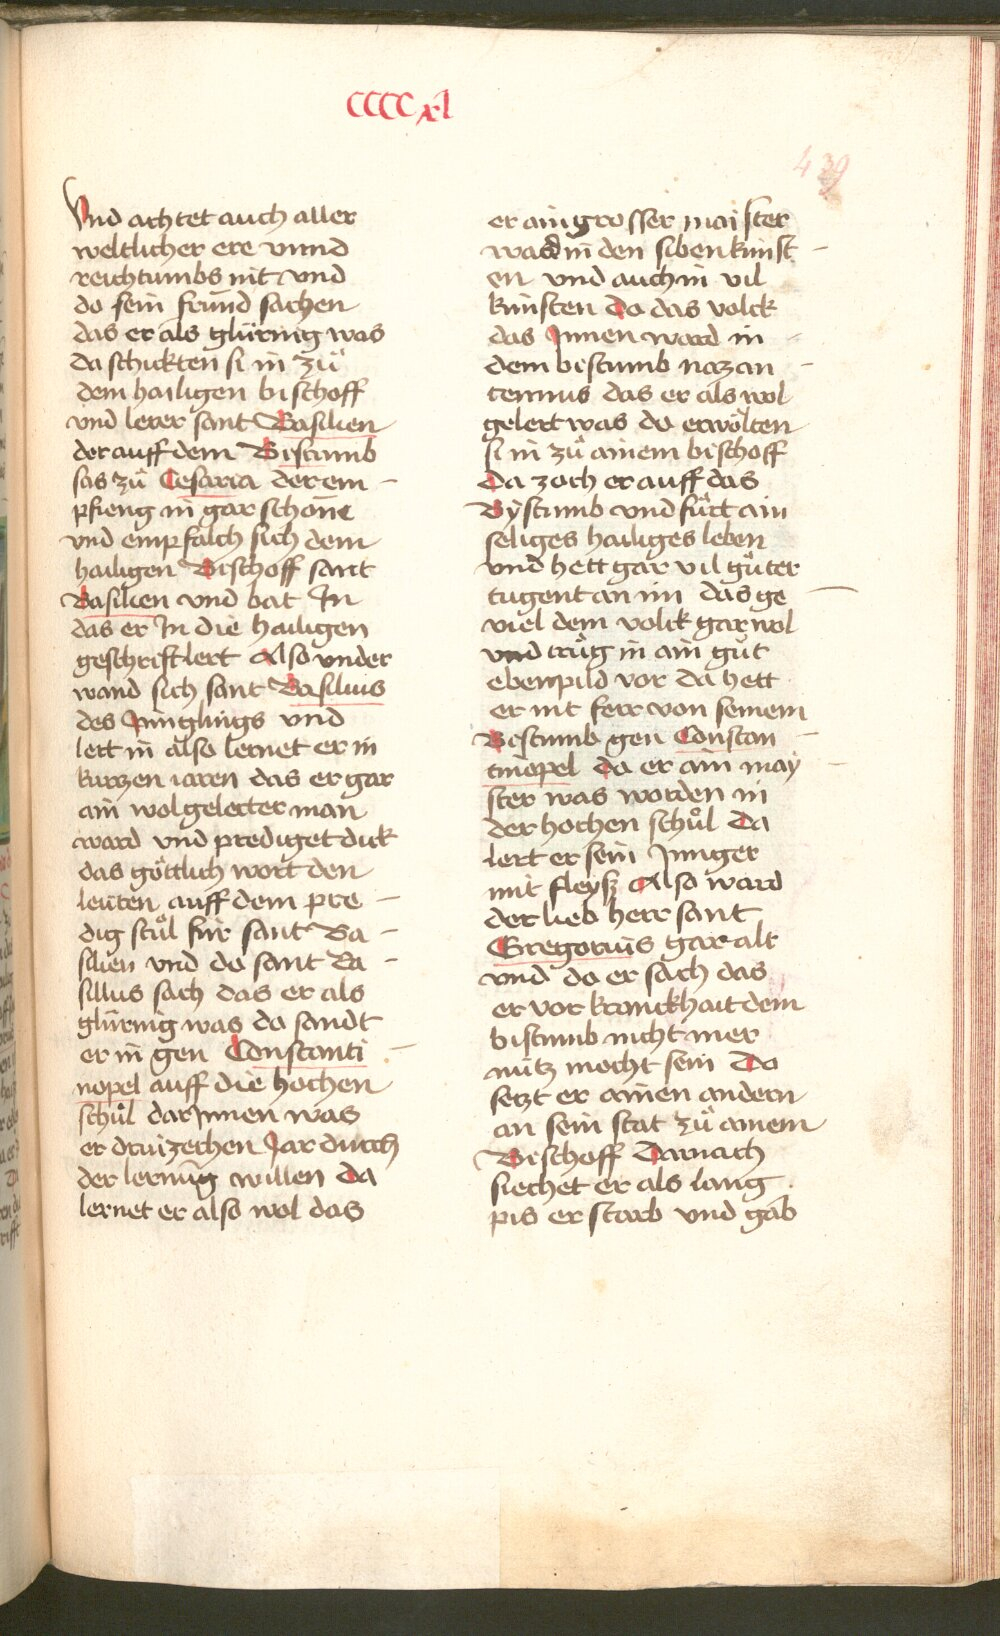 CCCCxl
439
Vnd achtet auch aller
weltlicher ere vnnd
reichtumbs nit vnd
do sein frund sachen
das er als glürnig was
da schickten si in zů
dem hailigen bischoff
vnd lerer sant Basilien
der auff dem Bistumb
sas zů Cesaria der em -
pfieng in gar schone
vnd empfalch sich dem
hailigen Bischoff sant
Basilien vnd bat Jn
das er Jn die hailigen
geschrifft lert Also vnder
wand sich sant Basilius
des Junglings vnd
lert in also lernet er in
kurczen iaren das er gar
ain wolgelerter man
ward vnd prediget dick
das göttlich wort den
leuten auff dem pre -
dig stůl für sant Ba -
silien vnd do sant Ba -
sillus sach das er als
glürnig was do sandt
er in gen Constanti -
nopel auff die hochen
schůl dar Jnnen was
er drwizechen Jar durch
der lernūg willen Da
lernet er also wol das
er ain grosser maister
ward in den siben kunst -
en vnd auch in vil
kunsten Do das volck
das Jnnen ward in -
dem bistumb nazan -
tennus das er als wol
gelert was do erwölten
si in zů ainem bischoff
Da zoch er auff das
Bystumb vnd fůrt ain
seliges hailiges leben
vnd hett gar vil gůter
tugent an im das ge -
viel dem volck gar wol
vnd trůg in ain gůt
ebenpild vor da hett
er nit ferr von seinem
Bistumb gen Constan -
tinopel da er ain may -
ster was worden in
der hochen schůl Da
lert er sein Junger
mit fleysz Also ward
der lieb herr sant
Gregorius gar alt
vnd do er sach das
er vor kranckhait dem
bistumb nicht mer
nütz mocht sein Do
setzt er ainen andern
an sein stat zů ainem
Bischoff Darnach
siechet er als lang
pis er starb vnd gab